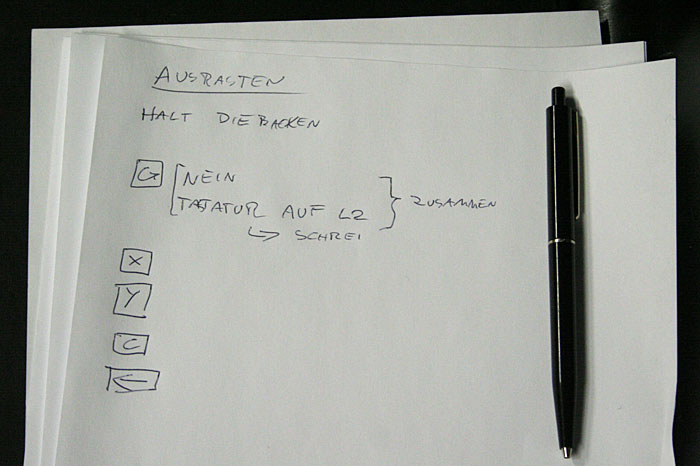 AUSRASTEN
HALT DIE BACKEN
G [ NEIN
TASTATUR AUF L2 } ZUSAMMEN
↳ SCHREI
X
Y
C
←